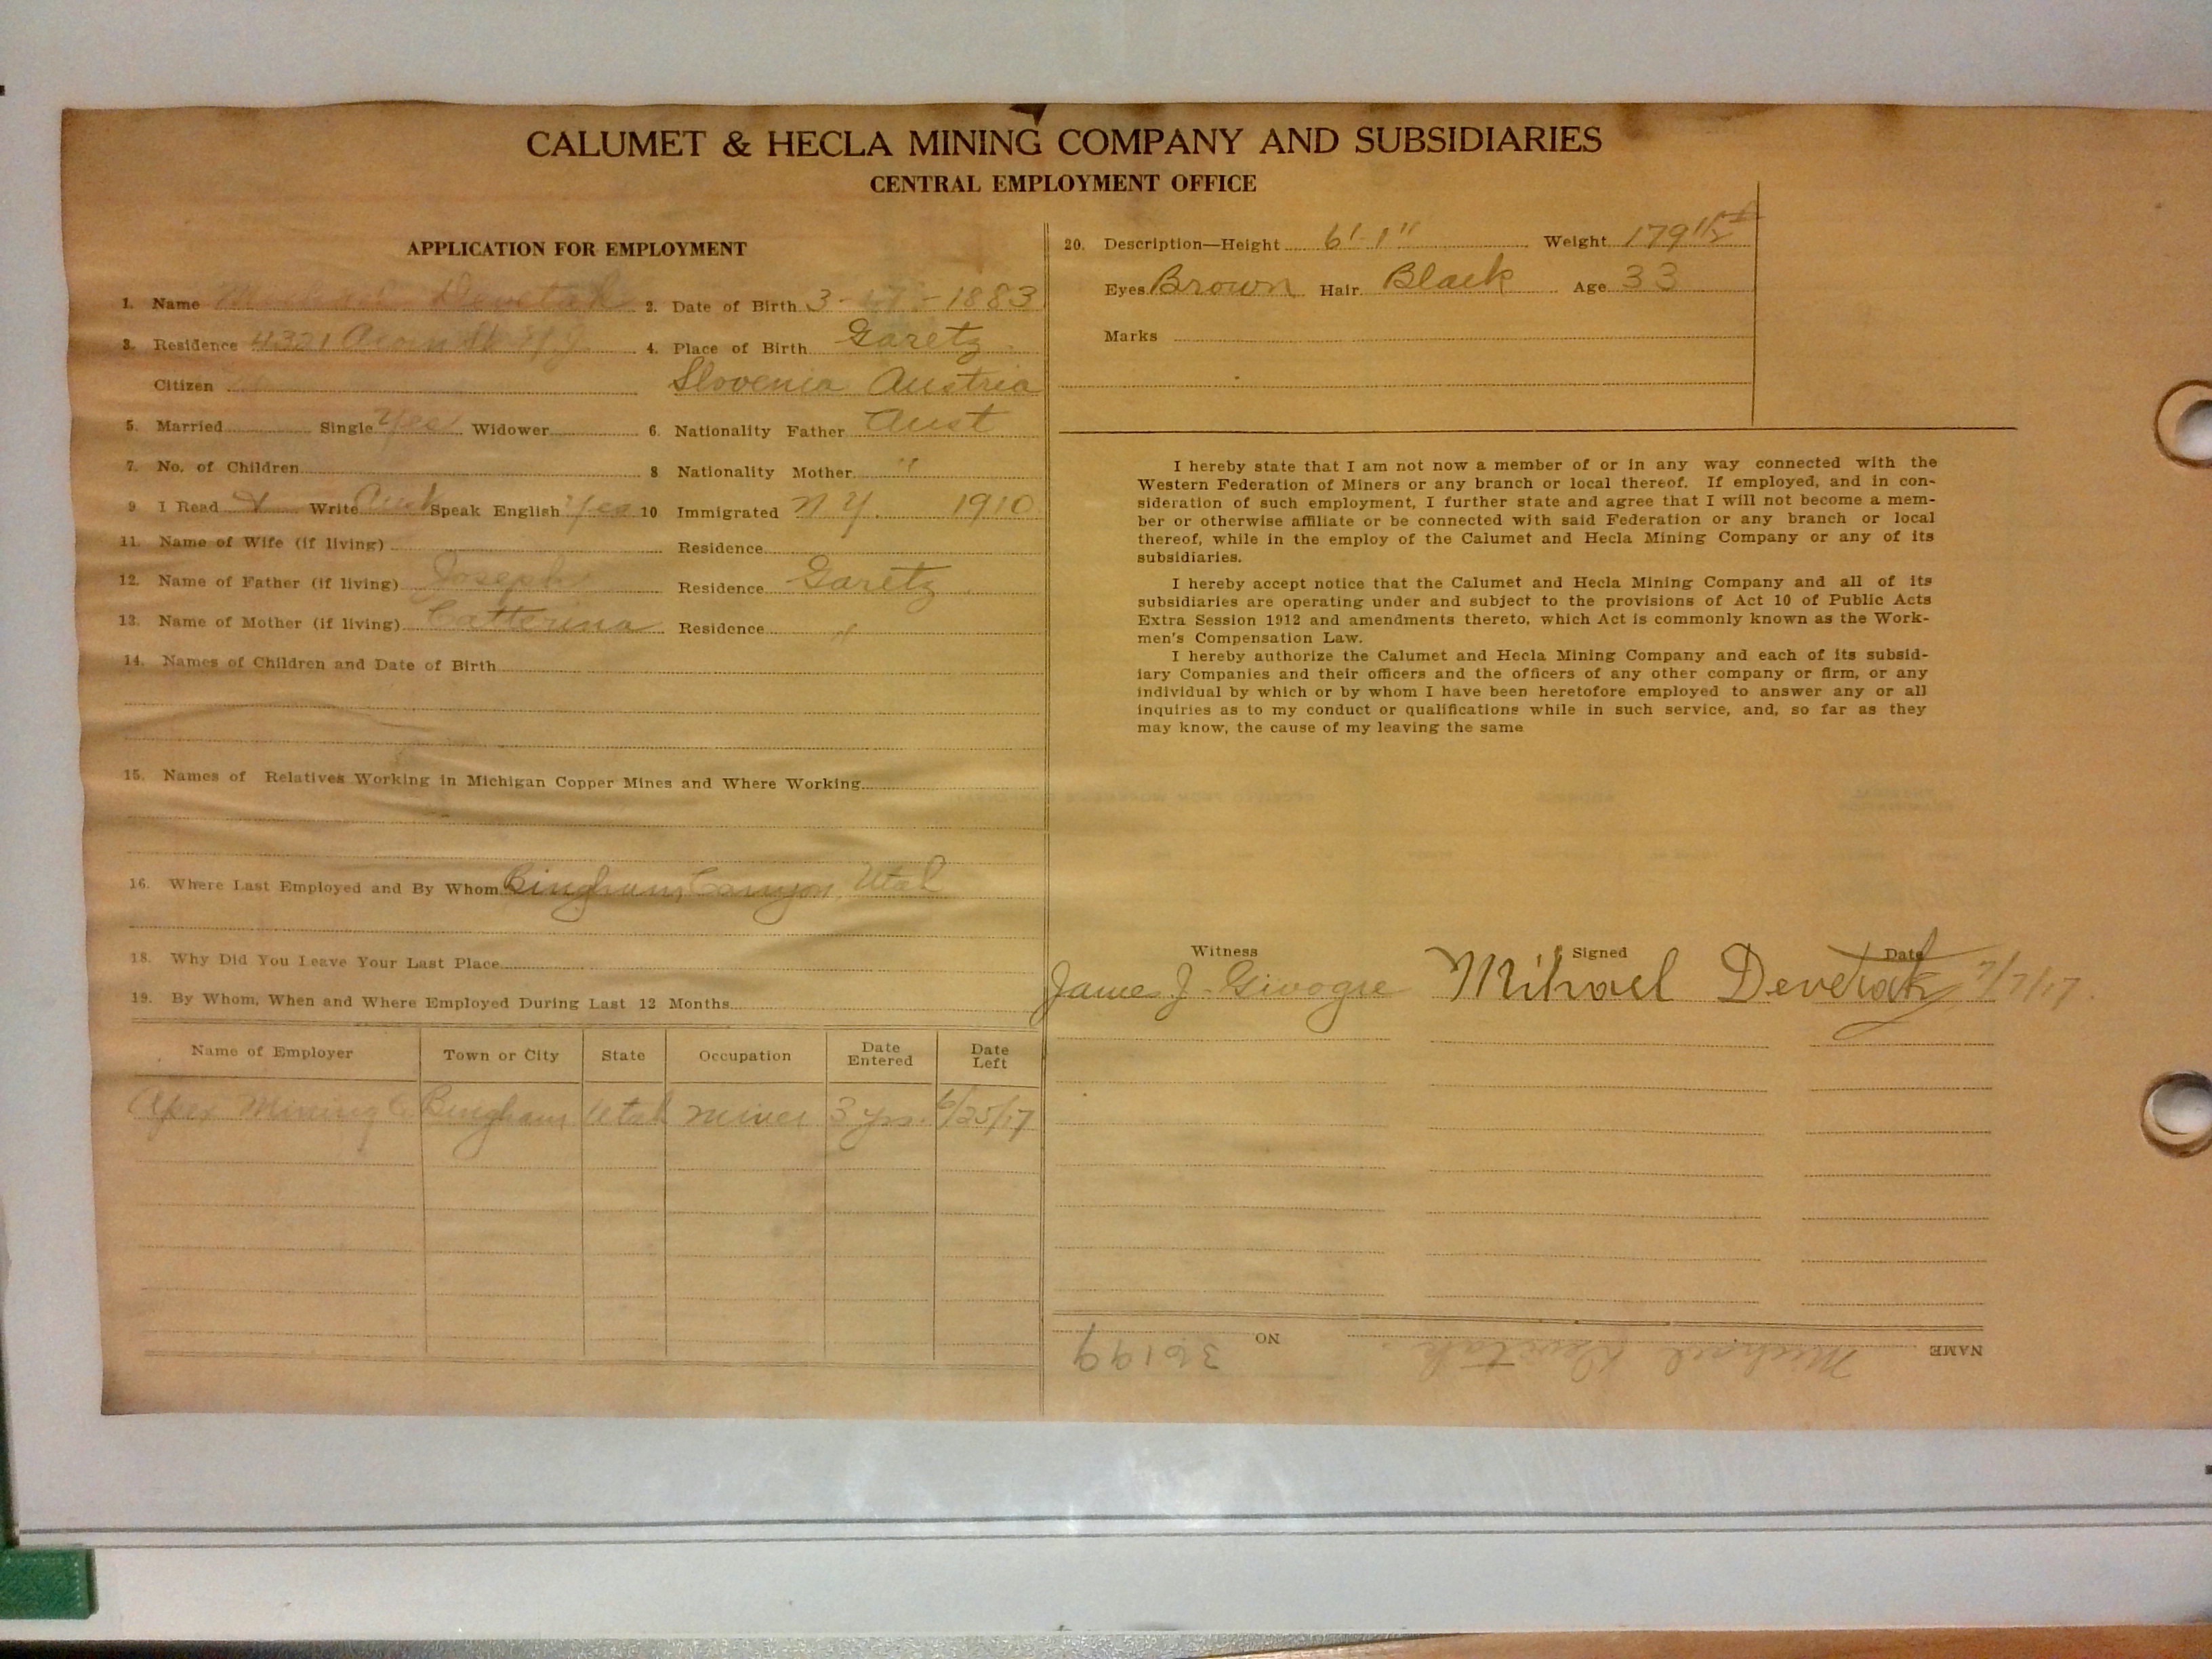 CALUMET & HECLA MINING COMPANY AND SUBSIDIARIES
CENTRAL EMPLOYMENT OFFICE
APPLICATION FOR EMPLOYMENT
1. Name Devetak 2. Date of Birth 3- -1883
3. Residence 4321 4. Place of Birth Garetz
Citizen Slovenia Austria
5. Married Single Yes Widower 6. Nationality Father Aust
7. No. of Children 8 Nationality Mother "
9 I Read Write Aust Speak English Yes 10 Immigrated N.Y. 1910
11. Name of Wife (if living) Residence
12. Name of Father (if living) Joseph Residence Garetz
13. Name of Mother (if living) Catterina Residence "
14. Names of Children and Date of Birth
15. Names of Relatives Working in Michigan Copper Mines and Where Working
16. Where Last Employed and By Whom Bingham Canyon, Utah
18. Why Did You Leave Your Last Place
19. By Whom, When and Where Employed During Last 12 Months
Name of Employer Town or City State Occupation Date Entered Date Left
Apex Mining Co Bingham Utah miner 3 yrs. 6/25/17
20. Description—Height 6'-1" Weight 179 1/2
Eyes Brown Hair Black Age 33
Marks
I hereby state that I am not now a member of or in any way connected with the
Western Federation of Miners or any branch or local thereof. If employed, and in con-
sideration of such employment, I further state and agree that I will not become a mem-
ber or otherwise affiliate or be connected with said Federation or any branch or local
thereof, while in the employ of the Calumet and Hecla Mining Company or any of its
subsidiaries.
I hereby accept notice that the Calumet and Hecla Mining Company and all of its
subsidiaries are operating under and subject to the provisions of Act 10 of Public Acts
Extra Session 1912 and amendments thereto, which Act is commonly known as the Work-
men's Compensation Law.
I hereby authorize the Calumet and Hecla Mining Company and each of its subsid-
iary Companies and their officers and the officers of any other company or firm, or any
individual by which or by whom I have been heretofore employed to answer any or all
inquiries as to my conduct or qualifications while in such service, and, so far as they
may know, the cause of my leaving the same
Witness Signed Date
James J. Mihael Devetak 7/7/17.
NAME Michael Devetak. NO 36199